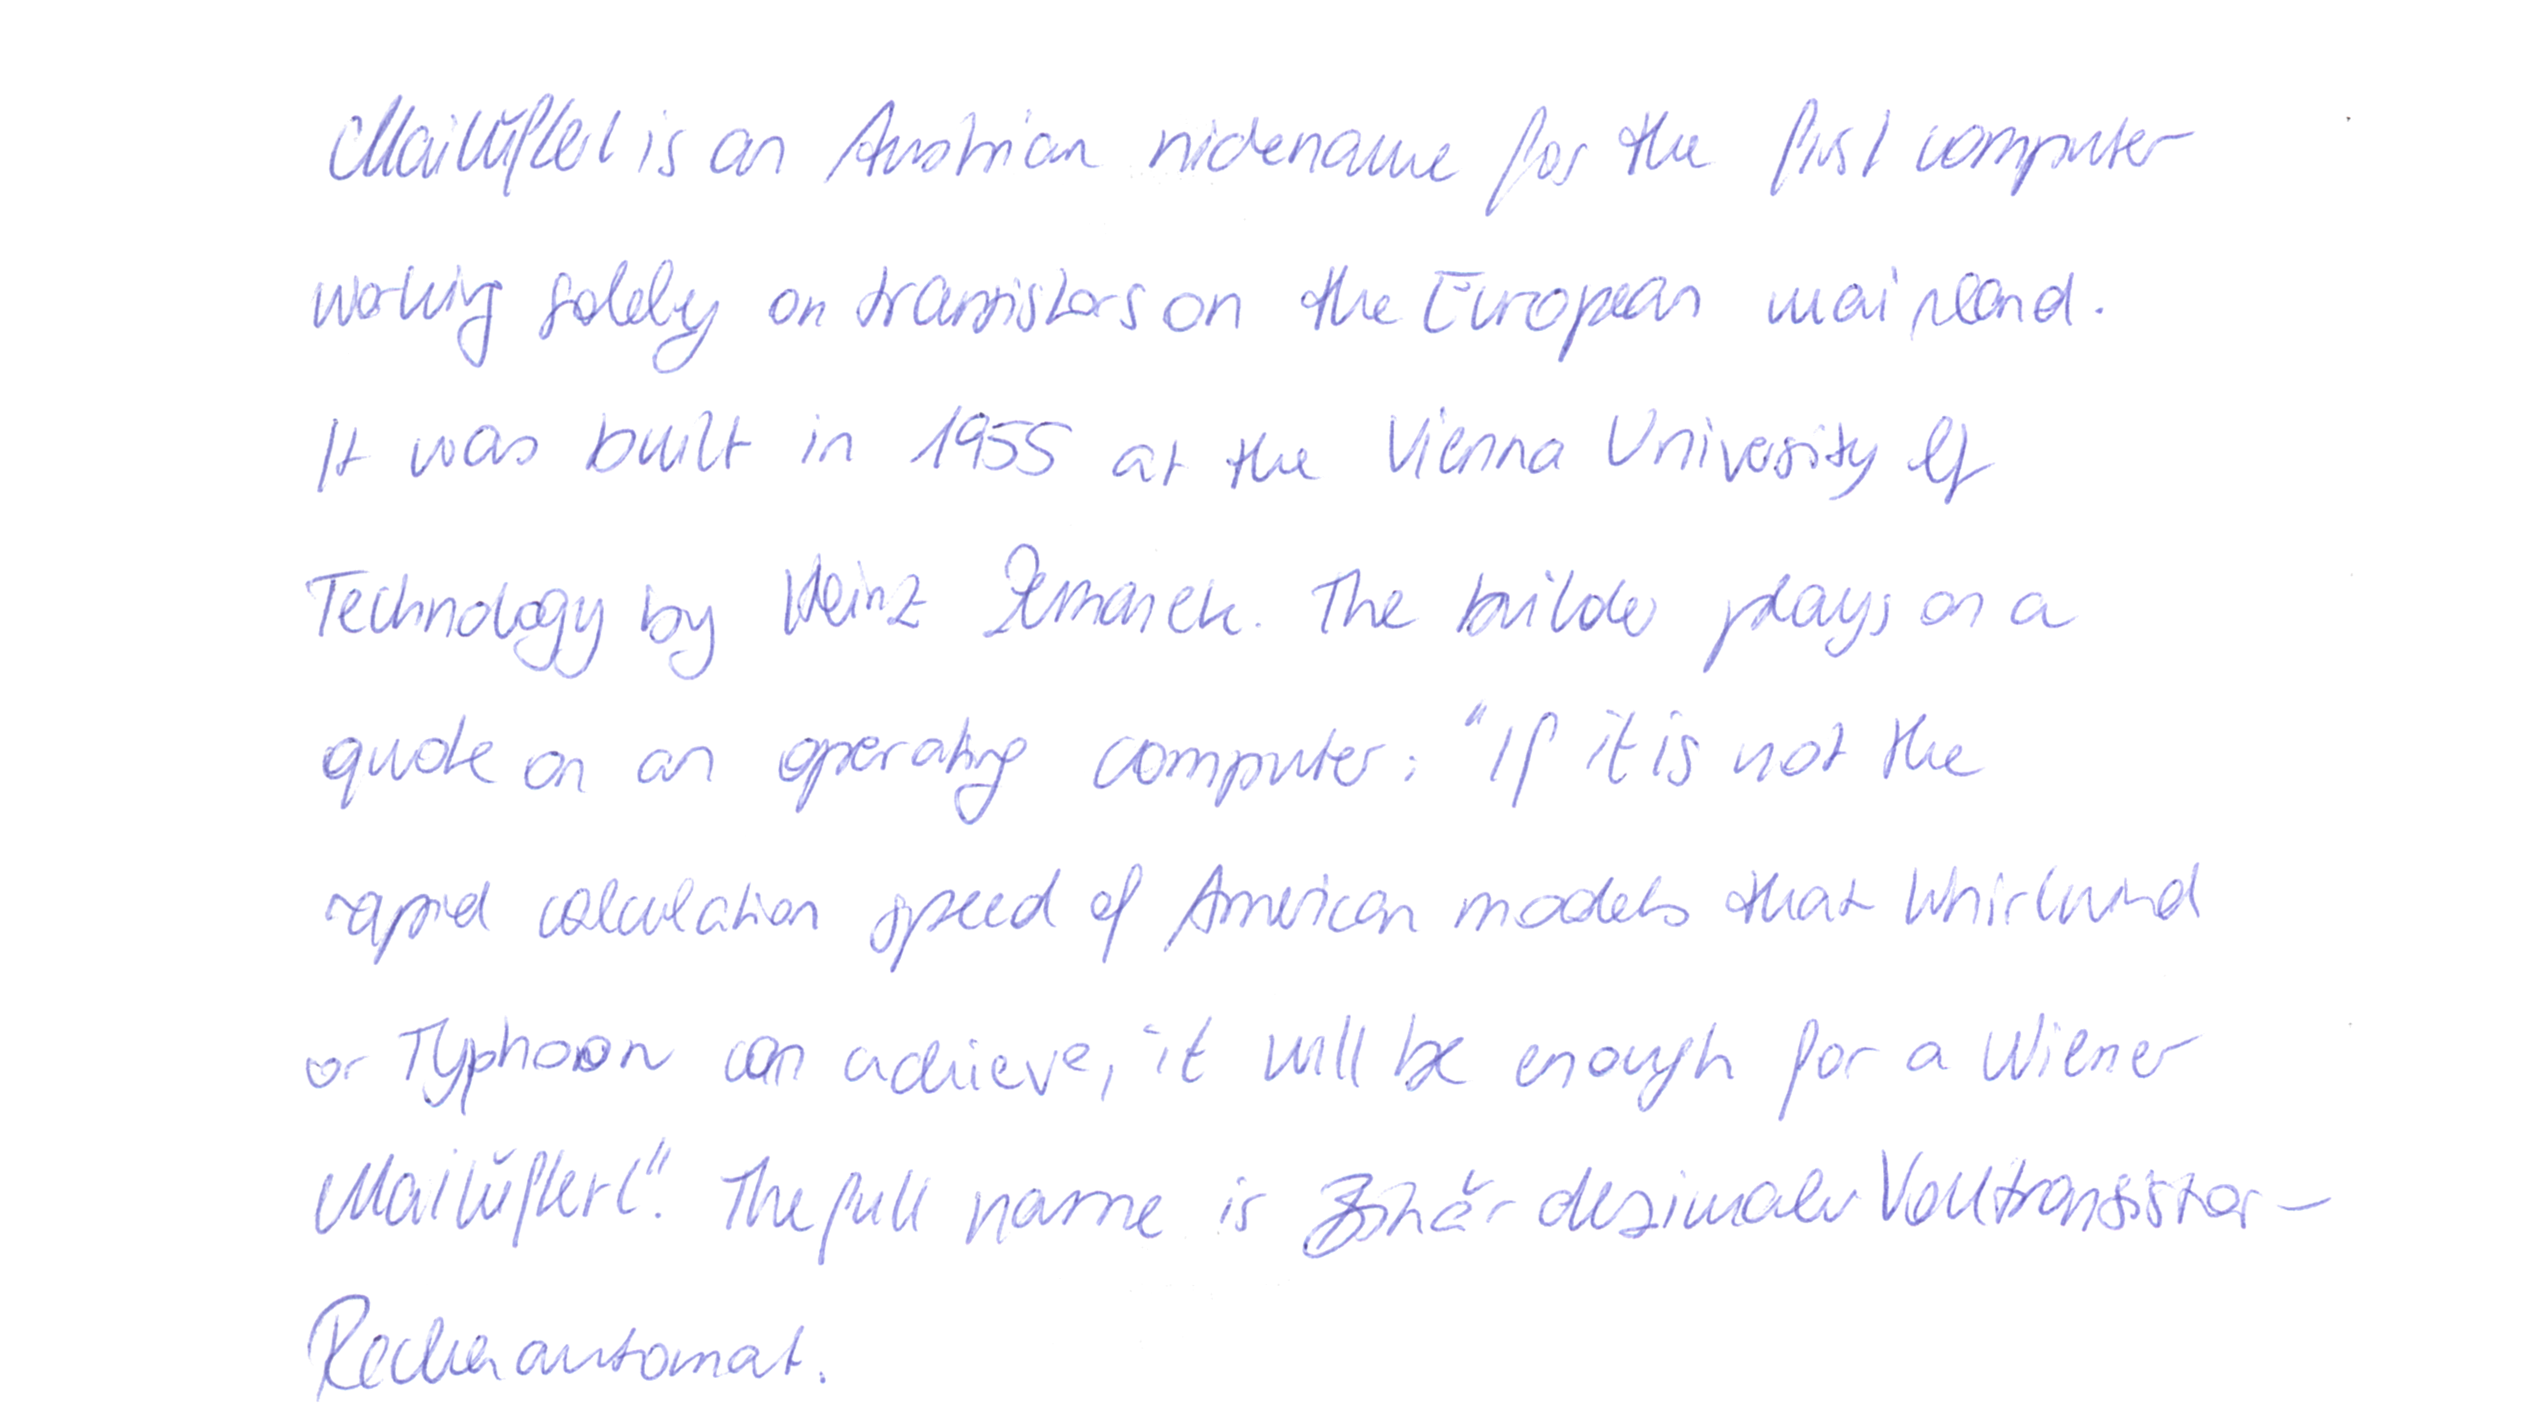 Mailüfterl is an Austrian nickename for the first computer
working solely on transistors on the European mainland.
It was built in 1955 at the Vienna University of
Technology by Heinz Zemanek. The builder plays on a
quote on an operating computer: "If it is not the
rapid calculation speed of American models that Whirlwind
or Typhoon can achieve, it will be enough for a Wiener
Mailüfterl". The full name is Binär dezimaler Volltransistor-
Rechenautomat.